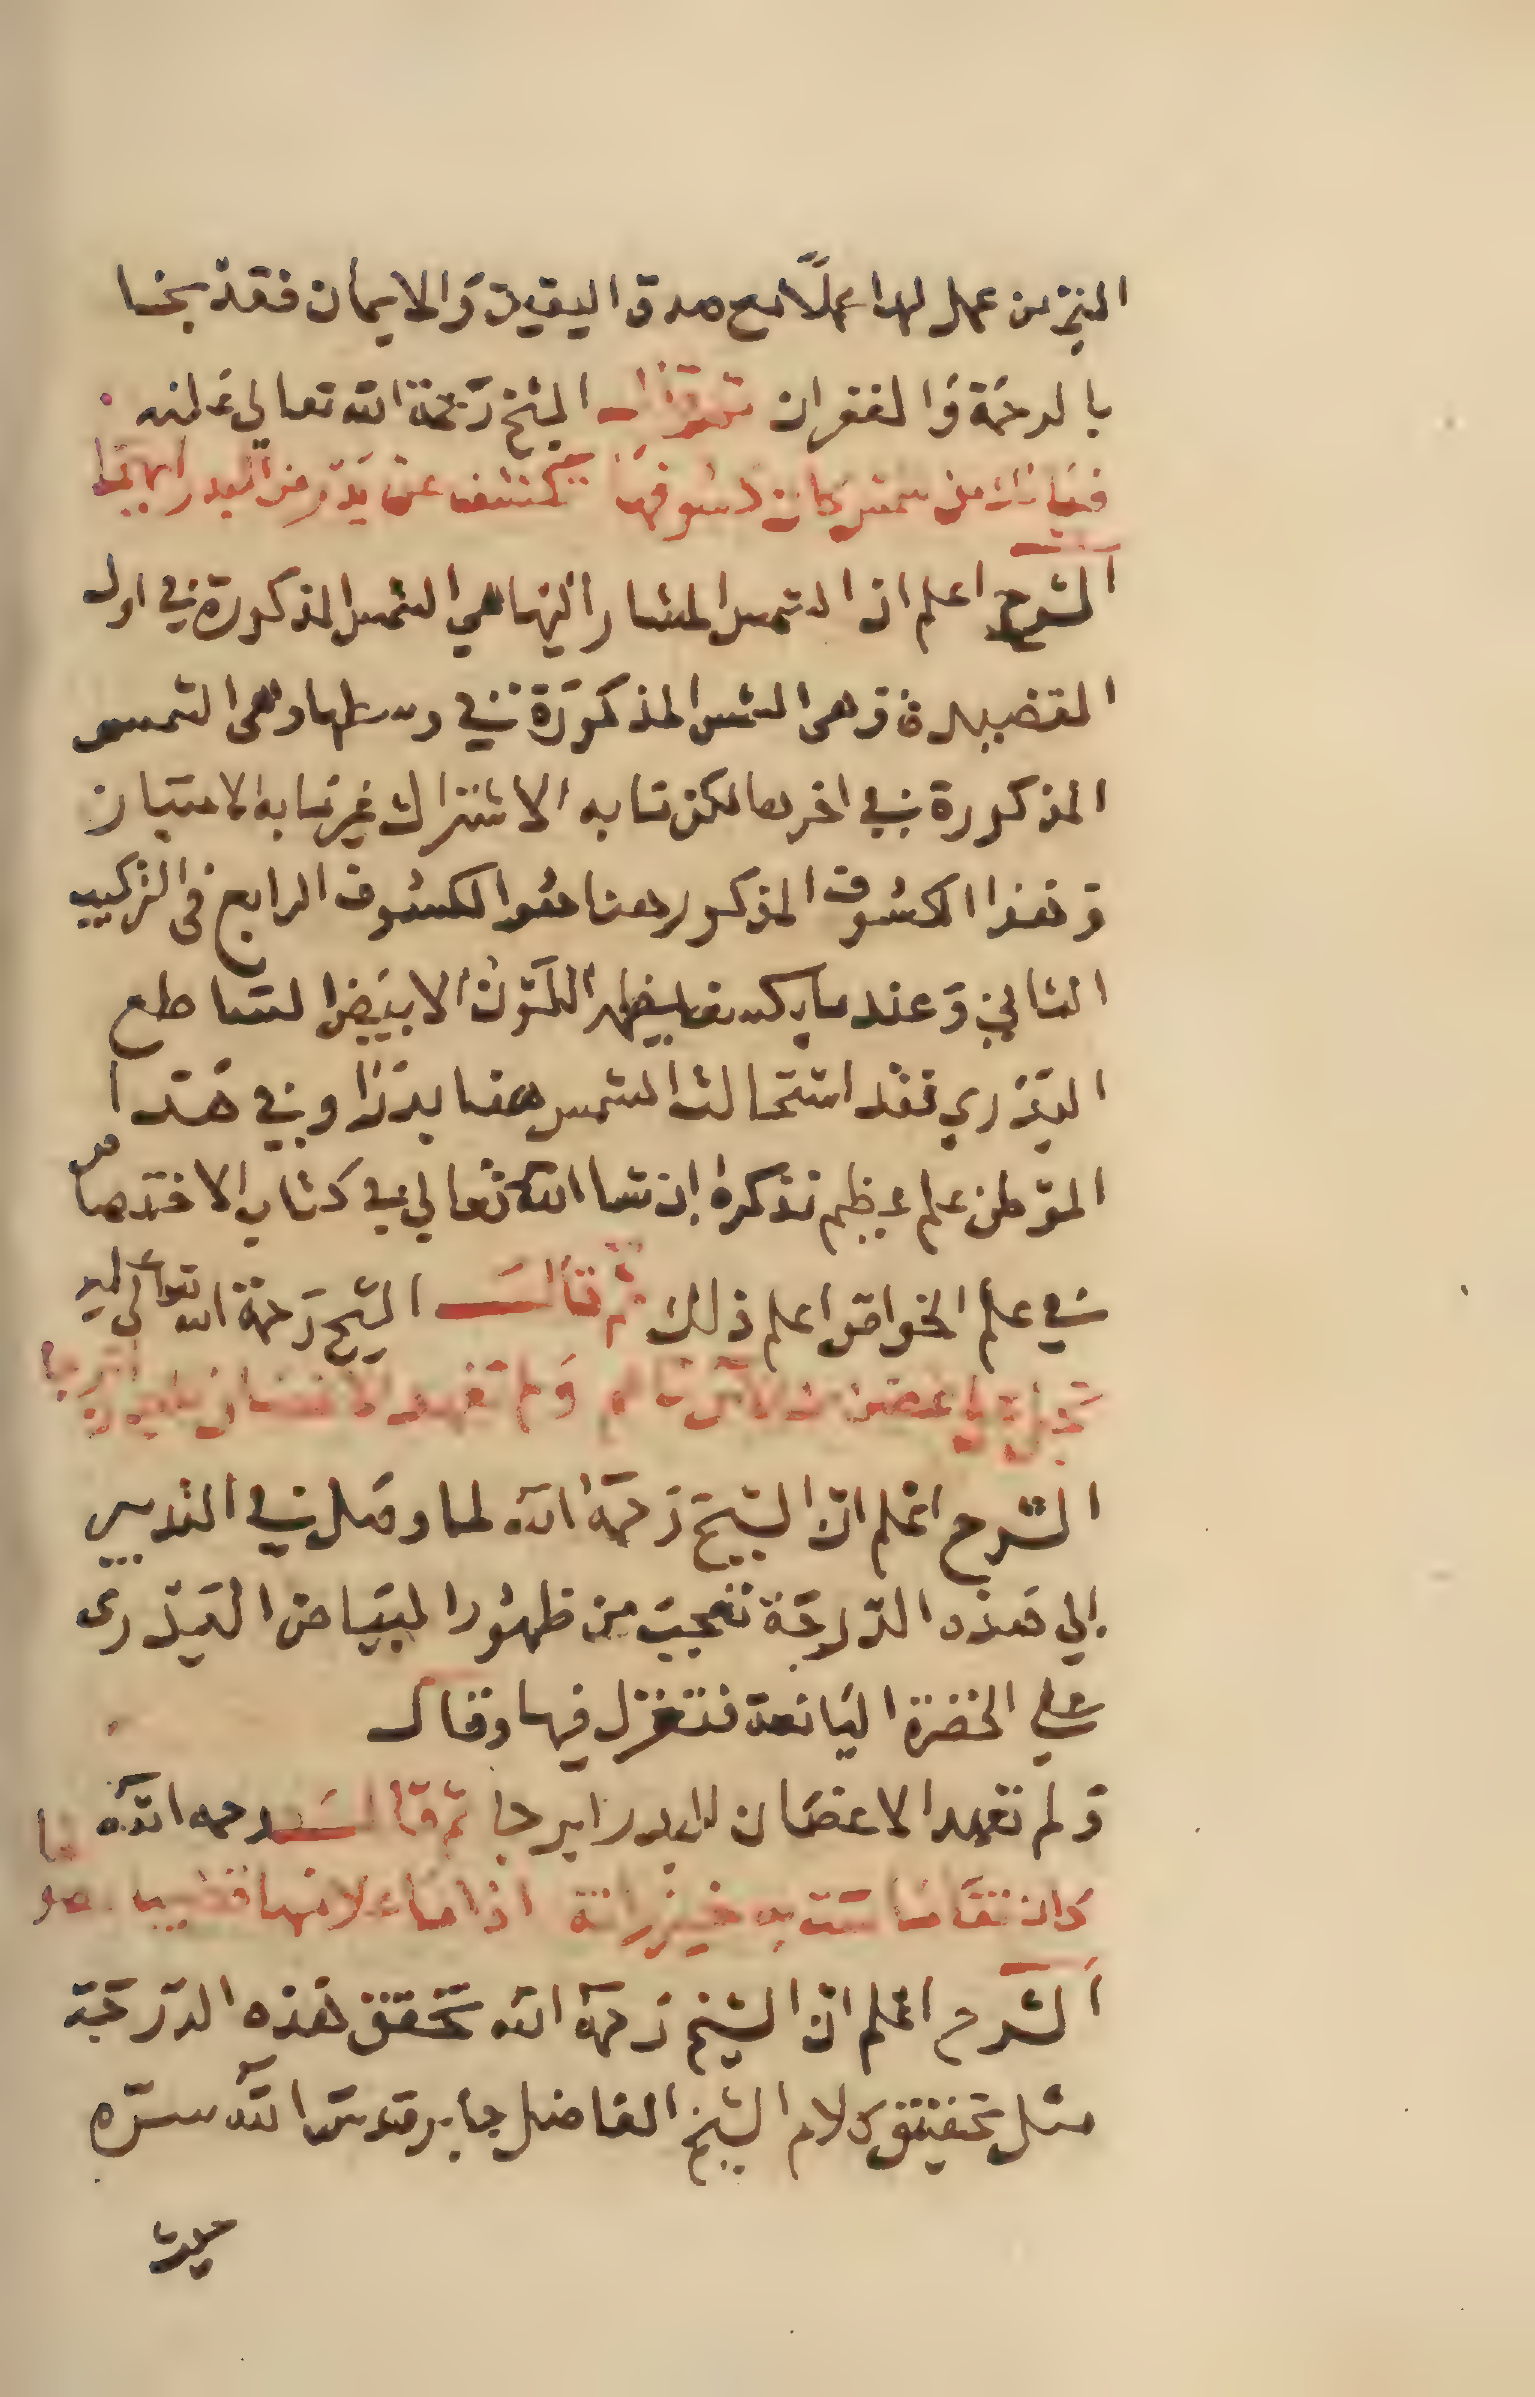 البئر من عمل لهدا عملًا مع صدق اليقين وَالايمان فقد نجا
بالرحمَة وَالغفران ثم قال الشيخ رَحمة الله تعالى عَليه
فيَا لك من شمس كان كسوفهَا تكشف عن بَدر من البدر ابهجا
اَلشرح اعلم ان الشمس المشار اليها هي الشمس المذكورة في اول
القصيدة وَهى الشمس المذكوَرَة في وسطها وهى الشمس
المذكورة في اخرها لكن تشابه الاشتراك غير تشابه الامتيان
وَهذا الكسُوف المذكور هنا هُو الكسُوف الرابع في التركيب
الثاني وَعند ما يكسف يظهر اللَوّن الابيَض الساطع
البَدري فقد استَحالت الشمس هنا بدرًا وفي هَذا
الموَطن علم عظيم نذكرهُ ان شا اللهُ تعالى في كتاب الاختصاص
في علم الخواص اعلم ذلك ثم قالَ الشيخ رَحمة الله تعالى عليه
وَلم تعهد الاغصان للبدر ابرجا
الشَرح اعلم انّ الشيخ رَحمهُ الله لما وصَل في التدبير
الي هَذه الدّرجَة تعجبَ من ظهُور البَيَاض البَدْرى
على الخضرة اليَانعة فتغزل فيها وقال
وَلم تعهد الاغصَان للبدر ابرجا ثم قالَ رحمه الله
كان نقَا خيزرانة اذا ما علا منها قضيبا
اَلشَرح اعلم انّ الشيخ رَحمهُ الله تحَقق هَذه الدَرجَة
مثل تحقيق كلام الشيخ الفاضل جابر قدسَ اللهُ سرّه
حيث